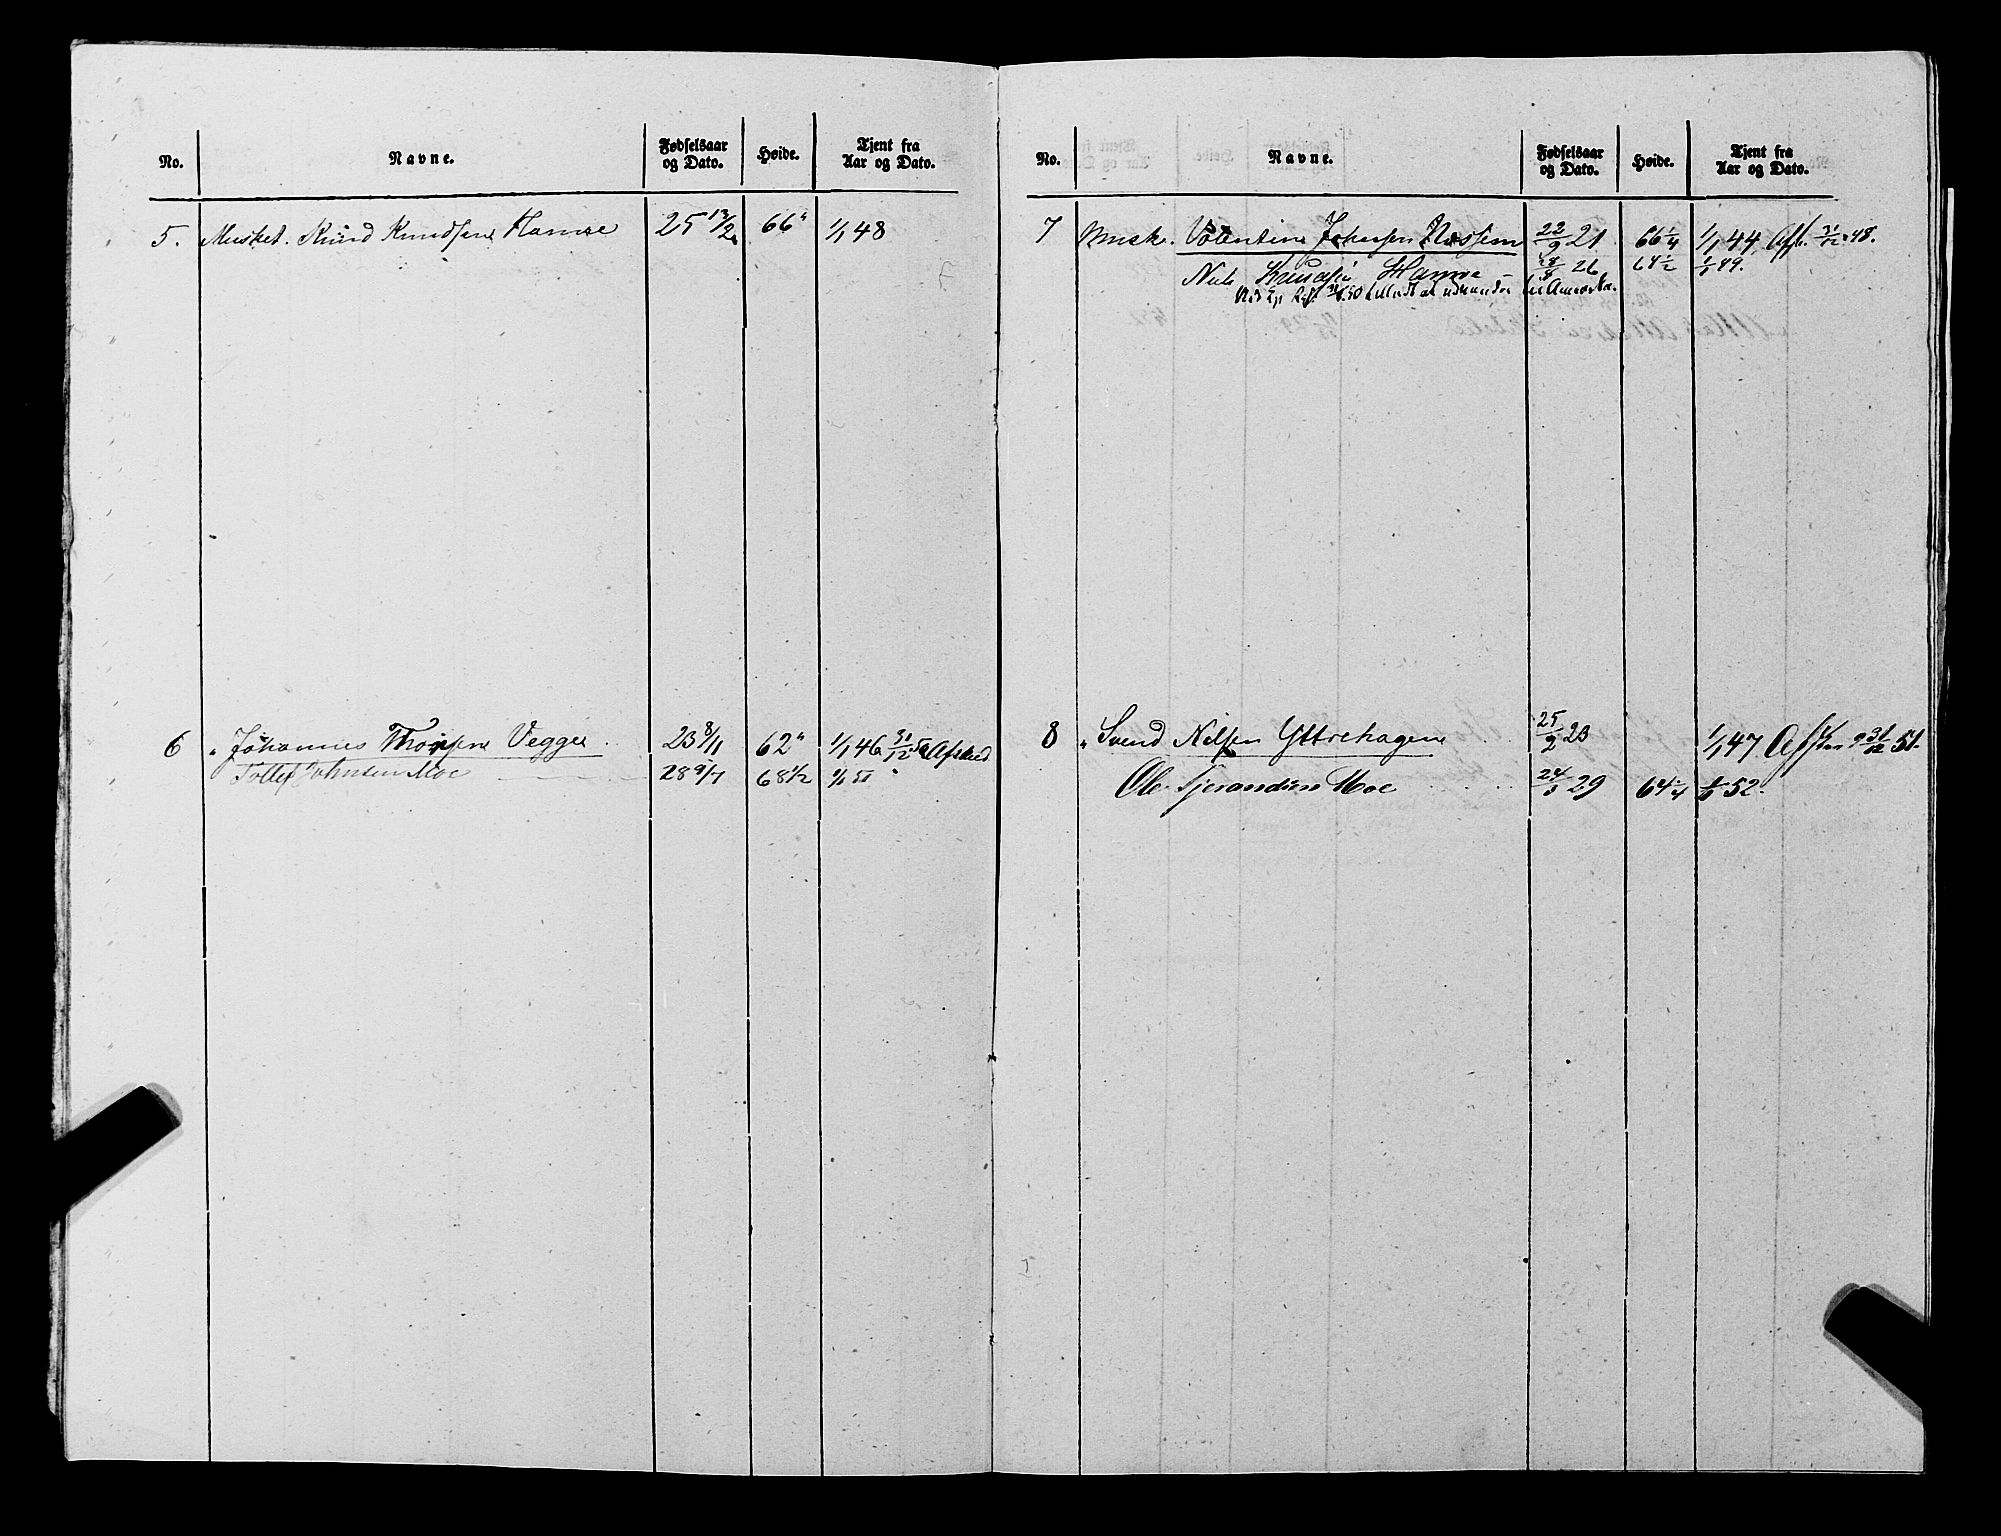 No. Navne. Fødselsaar og Dato. Høide. Tjent fra Aar og Dato.
5. Musket. Knud Knudsen Hamre 25 13/2 66" 1/1 48
6 " Johannes Thorsen Vegge 23 8/11 62" 1/1 46 31/12 50 Afsked
Tollef Johnsen Moe 28 9/7 68 1/2 1/1 51
No. Navne. Fødselsaar og Dato. Høide. Tjent fra Aar og Dato.
7 Musk. Valentin Johnsen Næssem 22/9 21 66 1/4 1/1 44. Afsk. 31/12 48.
Niels Knudsen Hamre 26 64 1/2 1/1 49.
50 tilladt at udvandre til Amerika.
8 " Svend Nilsen Yttrehagen 25/2 23 1/1 47 31/12 51.
Ole Tjerandsen Moe 24/5 29 64 1/4 1/1 52.